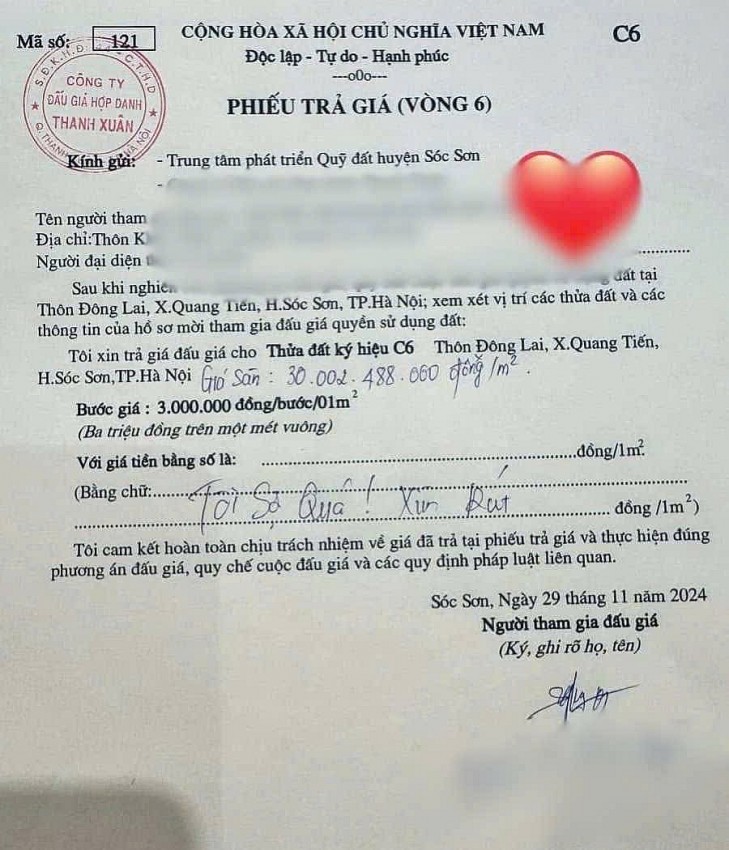 Mã số: 121
CỘNG HÒA XÃ HỘI CHỦ NGHĨA VIỆT NAM
C6
Độc lập - Tự do - Hạnh phúc
---o0o---
CÔNG TY
ĐẤU GIÁ HỢP DANH
THANH XUÂN
PHIẾU TRẢ GIÁ (VÒNG 6)
Kính gửi: - Trung tâm phát triển Quỹ đất huyện Sóc Sơn
-
Tên người tham
Địa chỉ:Thôn
Người đại diện
Sau khi nghiên đất tại
Thôn Đông Lai, X.Quang Tiến, H.Sóc Sơn, TP.Hà Nội; xem xét vị trí các thửa đất và các
thông tin của hồ sơ mời tham gia đấu giá quyền sử dụng đất:
Tôi xin trả giá đấu giá cho Thửa đất ký hiệu C6 Thôn Đông Lai, X.Quang Tiến,
H.Sóc Sơn,TP.Hà Nội Giá Sàn : 30.002.488.000 đồng/m².
Bước giá : 3.000.000 đồng/bước/01m²
(Ba triệu đồng trên một mét vuông)
Với giá tiền bằng số là: ........................................................đồng/1m².
(Bằng chữ:..... Tôi Sợ Quá ! Xin Rút
........................................................ đồng /1m²)
Tôi cam kết hoàn toàn chịu trách nhiệm về giá đã trả tại phiếu trả giá và thực hiện đúng
phương án đấu giá, quy chế cuộc đấu giá và các quy định pháp luật liên quan.
Sóc Sơn, Ngày 29 tháng 11 năm 2024
Người tham gia đấu giá
(Ký, ghi rõ họ, tên)